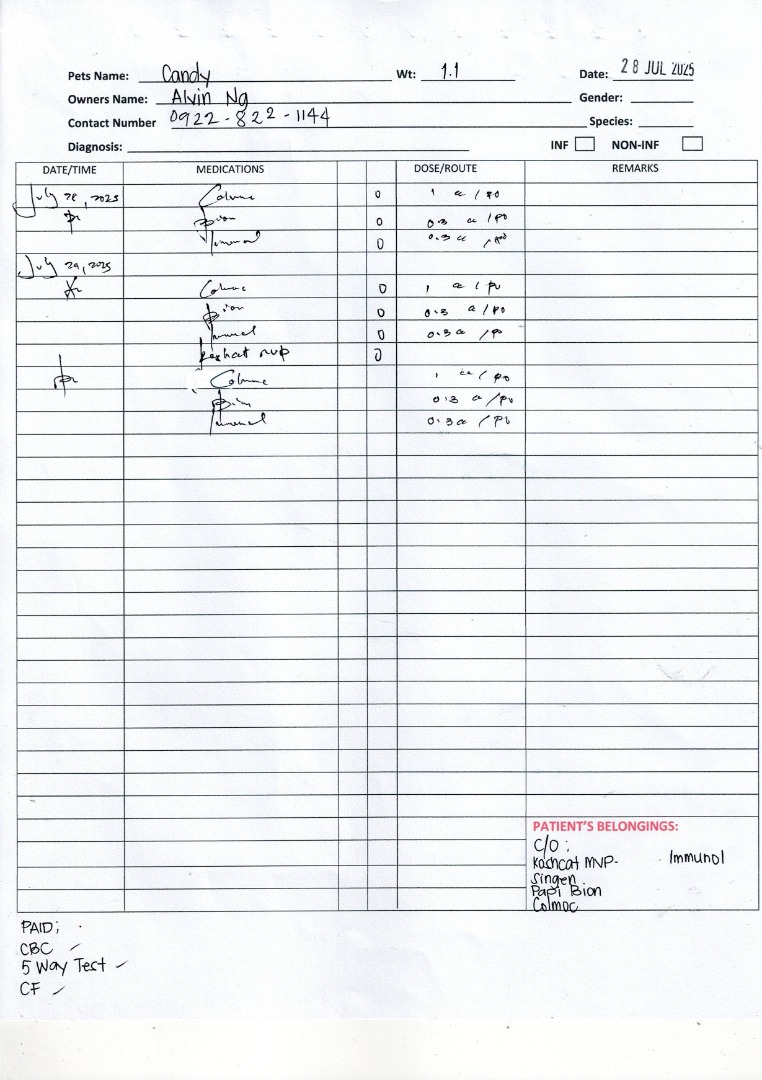 Pets Name: Candy Wt: 1.1 Date: 28 JUL 2025
Owners Name: Alvin Ng Gender:
Contact Number 0922-822-1144 Species:
Diagnosis: INF NON-INF
DATE/TIME MEDICATIONS DOSE/ROUTE REMARKS
July 28, 2025 0 1 cc / po
0 0.3 cc / po
0 0.3 cc / po
July 29, 2025
0 1 cc / po
0 0.3 cc / po
0 0.3 cc / po
0
1 cc / po
0.3 cc / po
0.3 cc / po
PATIENT'S BELONGINGS:
C/O:
Kashcat MNP- Immunol
Singen
Papi Bion
Colmoc
PAID;
CBC
5 Way Test
CF